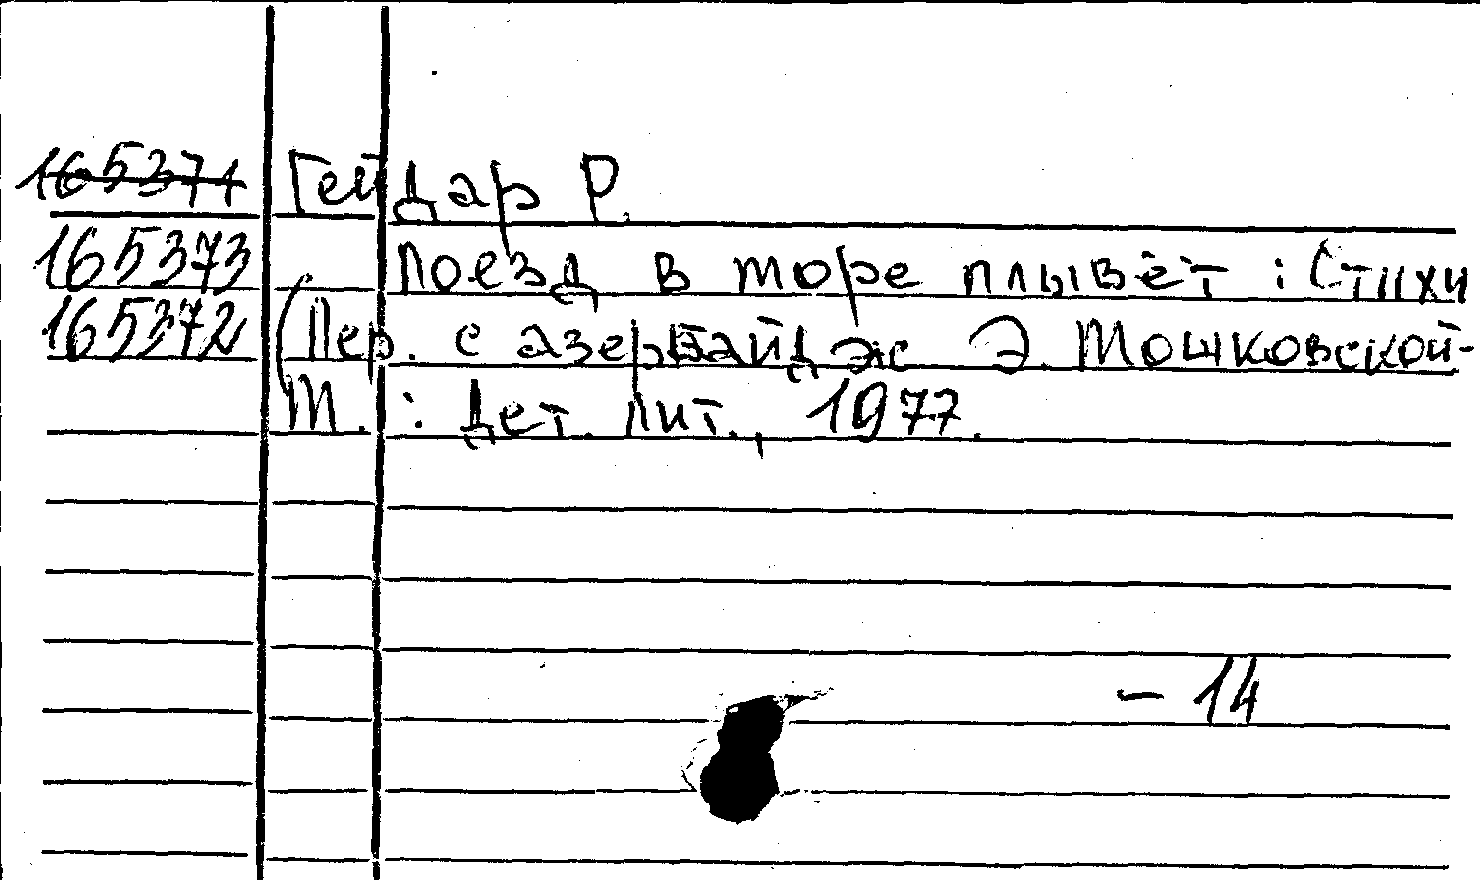 165371 Гейдар Р.
165373 Поезд в море плывёт : Стихи
165372 (Пер. с азербайдж Э. Мошковской-
М. : Дет. лит., 1977.
- 14